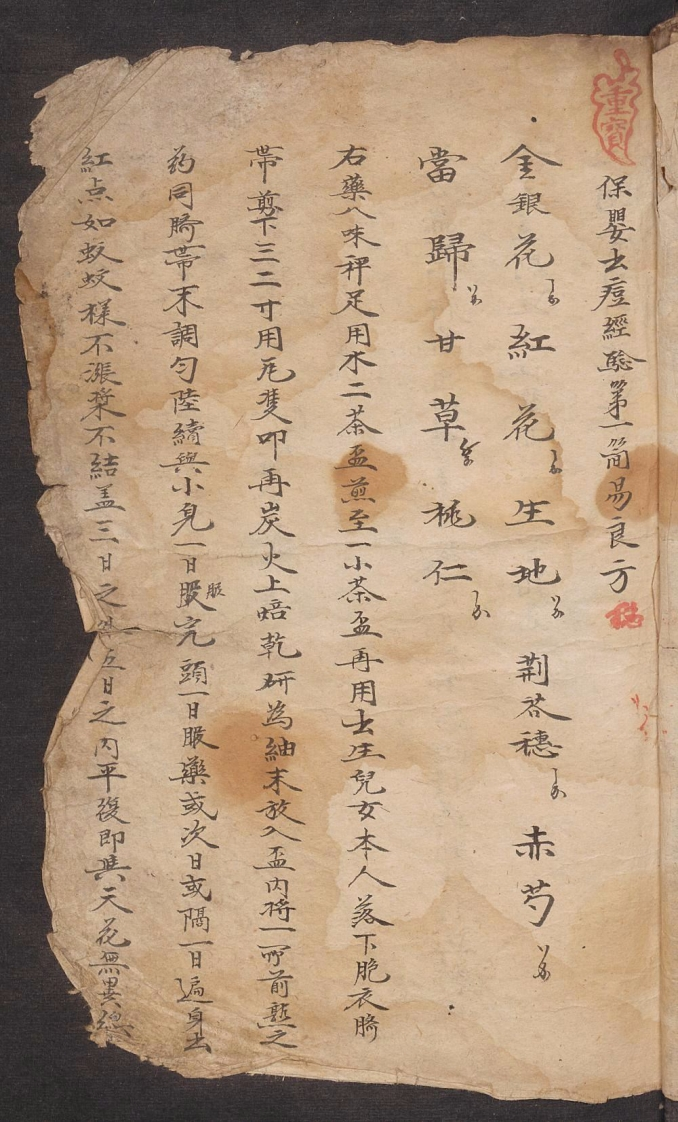 重寶
保嬰出痘經驗第一簡易良方
金銀花 紅花 生地 荆芥穗 赤芍
當歸 甘草 桃仁
右藥八味秤足用水二茶盃煎至一小茶盃再用出生兒女本人落下胞衣臍
帶剪下三二寸用瓦隻叩再炭火上焙乾研為紬末放入盃內將一前熬之
药同臍帶末調匀陸續與小兒一日服完頭一日服藥或次日或隔一日遍身出
服
紅点如蚊蚊樣不漲漿不結盖三日之五日之內平復即與天花無異總